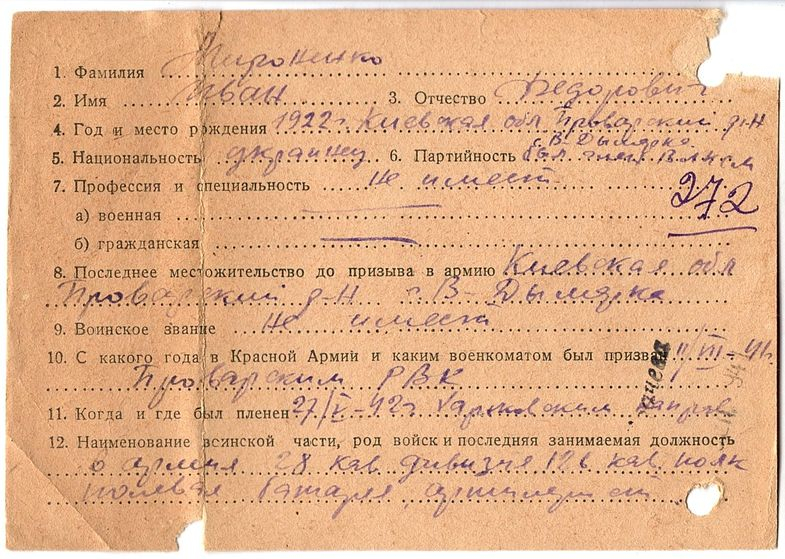 1. Фамилия Мироненко
2. Имя Иван 3. Отчество Федорович
4. Год и место рождения 1922 г. Киевская обл Броварский р-н
5. Национальность украинец 6. Партийность был член ВЛКСМ
с. В-Дымярка
7. Профессия и специальность не имеет
272
а) военная
б) гражданская
8. Последнее местожительство до призыва в армию Киевская обл
Броварский р-н с. В-Дымярка
9. Воинское звание не имеет
10. С какого года в Красной Армий и каким военкоматом был призван
Броварским РВК
11. Когда и где был пленен 27/V-42 г Харьковским направ
12. Наименование воинской части, род войск и последняя занимаемая должность
6 армия 28 кав дивизия 126 кав полк
полевая батарея